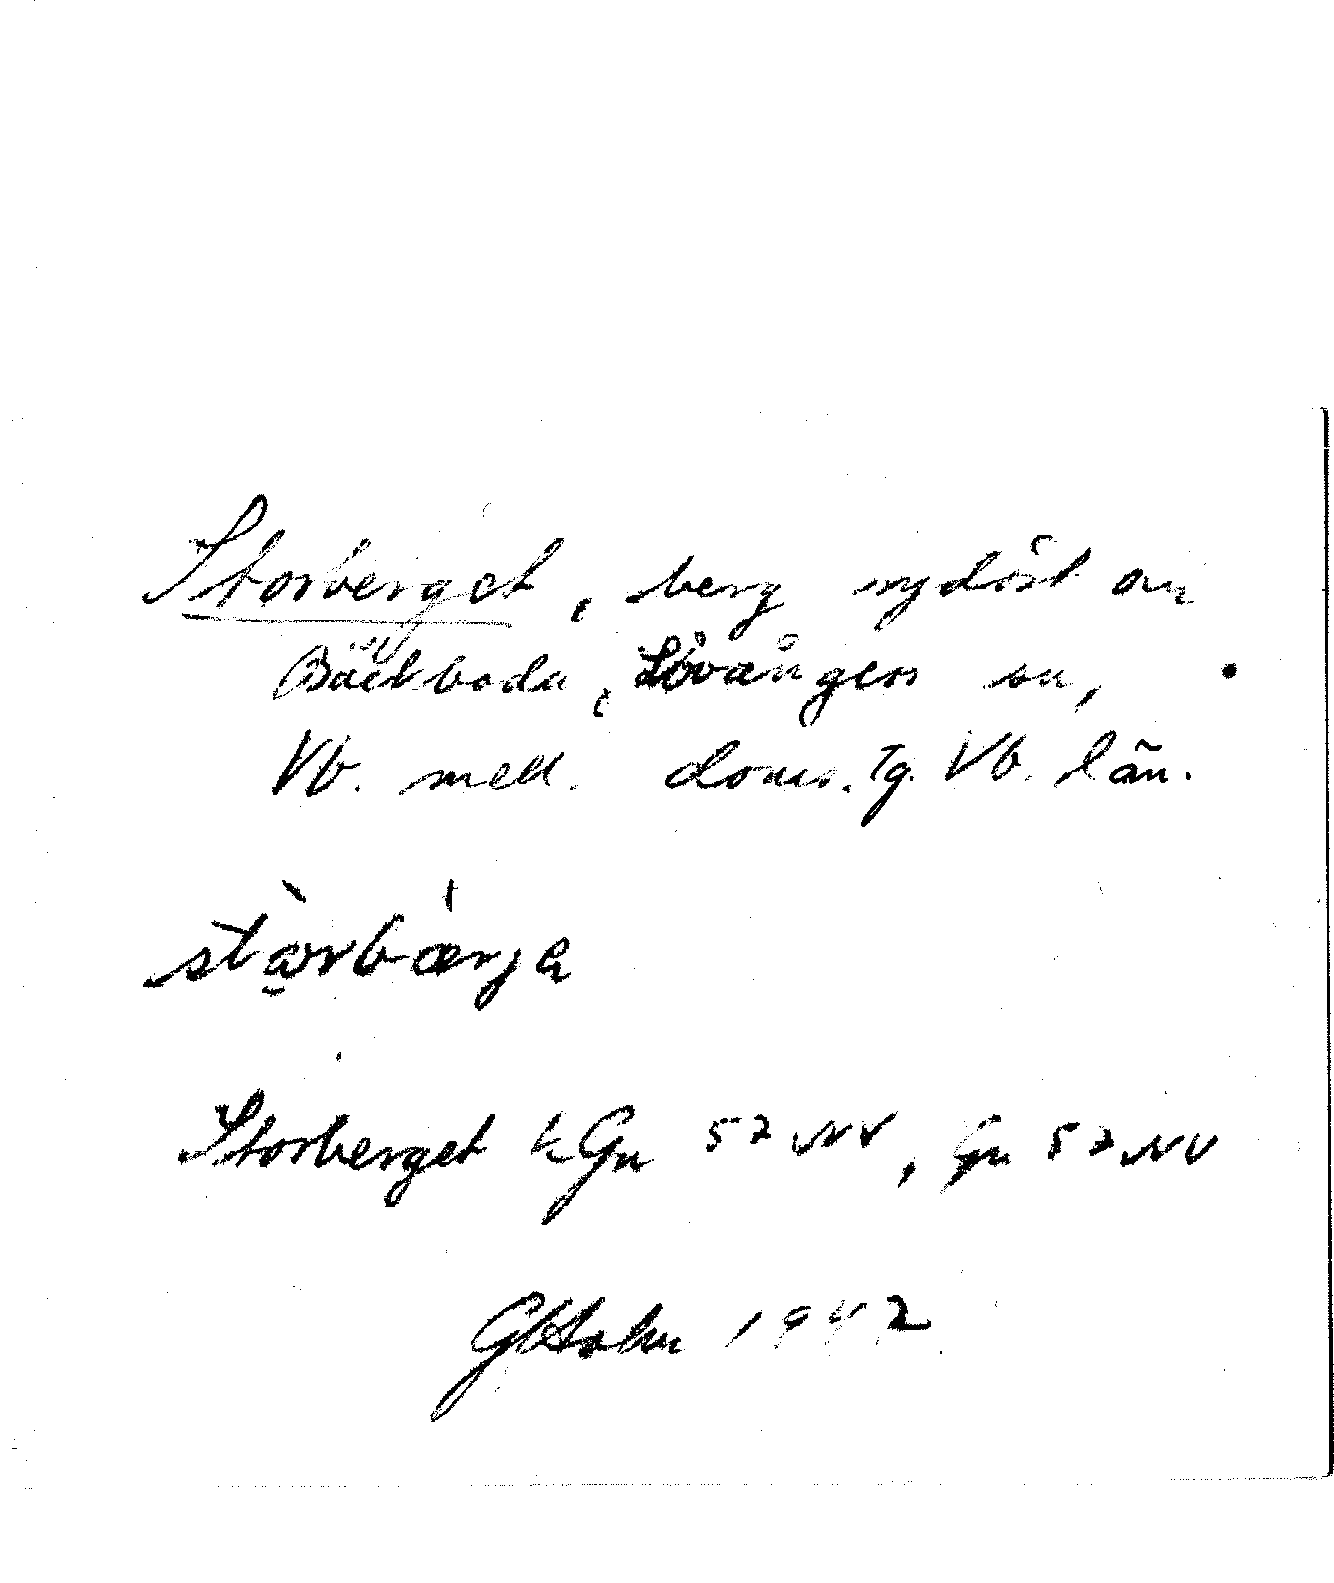 Storberget, berg sydöst om
Bäckboda, Lövångers sn,
Vb. mell. doms. tg. Vb. län.
Storberget kGn 52 NV, Gn 52 NV
GHolm 1942